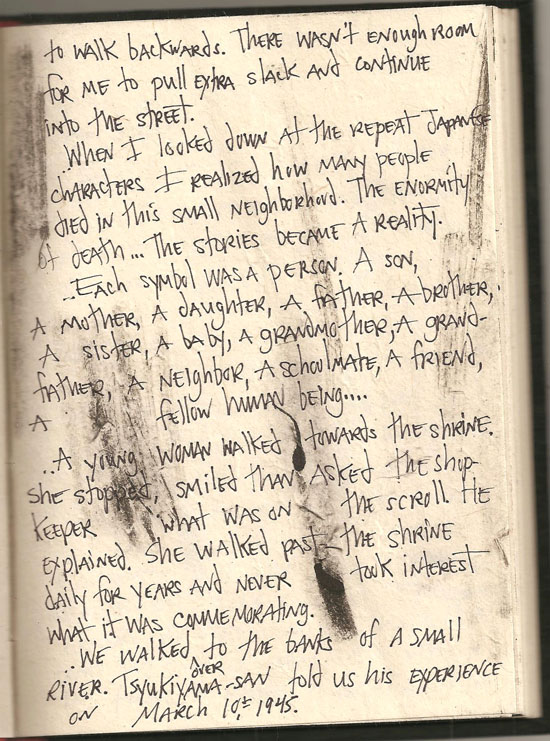 to walk backwards. There wasn't enough room
for me to pull extra slack and continue
into the street.
..When I looked down at the repeat Japanese
characters I realized how many people
died in this small neighborhood. The enormity
of death... The stories became a reality.
..Each symbol was a person. A son,
a mother, a daughter, a father, a brother,
a sister, a baby, a grandmother, a grand-
father, a neighbor, a schoolmate, a friend,
a fellow human being....
..A young woman walked towards the shrine.
She stopped, smiled than asked the shop-
keeper what was on the scroll. He
explained. She walked past the shrine
daily for years and never took interest
what it was commemorating.
..We walked over to the banks of a small
river. Tsyukiyama-san told us his experience
on March 10th 1945.